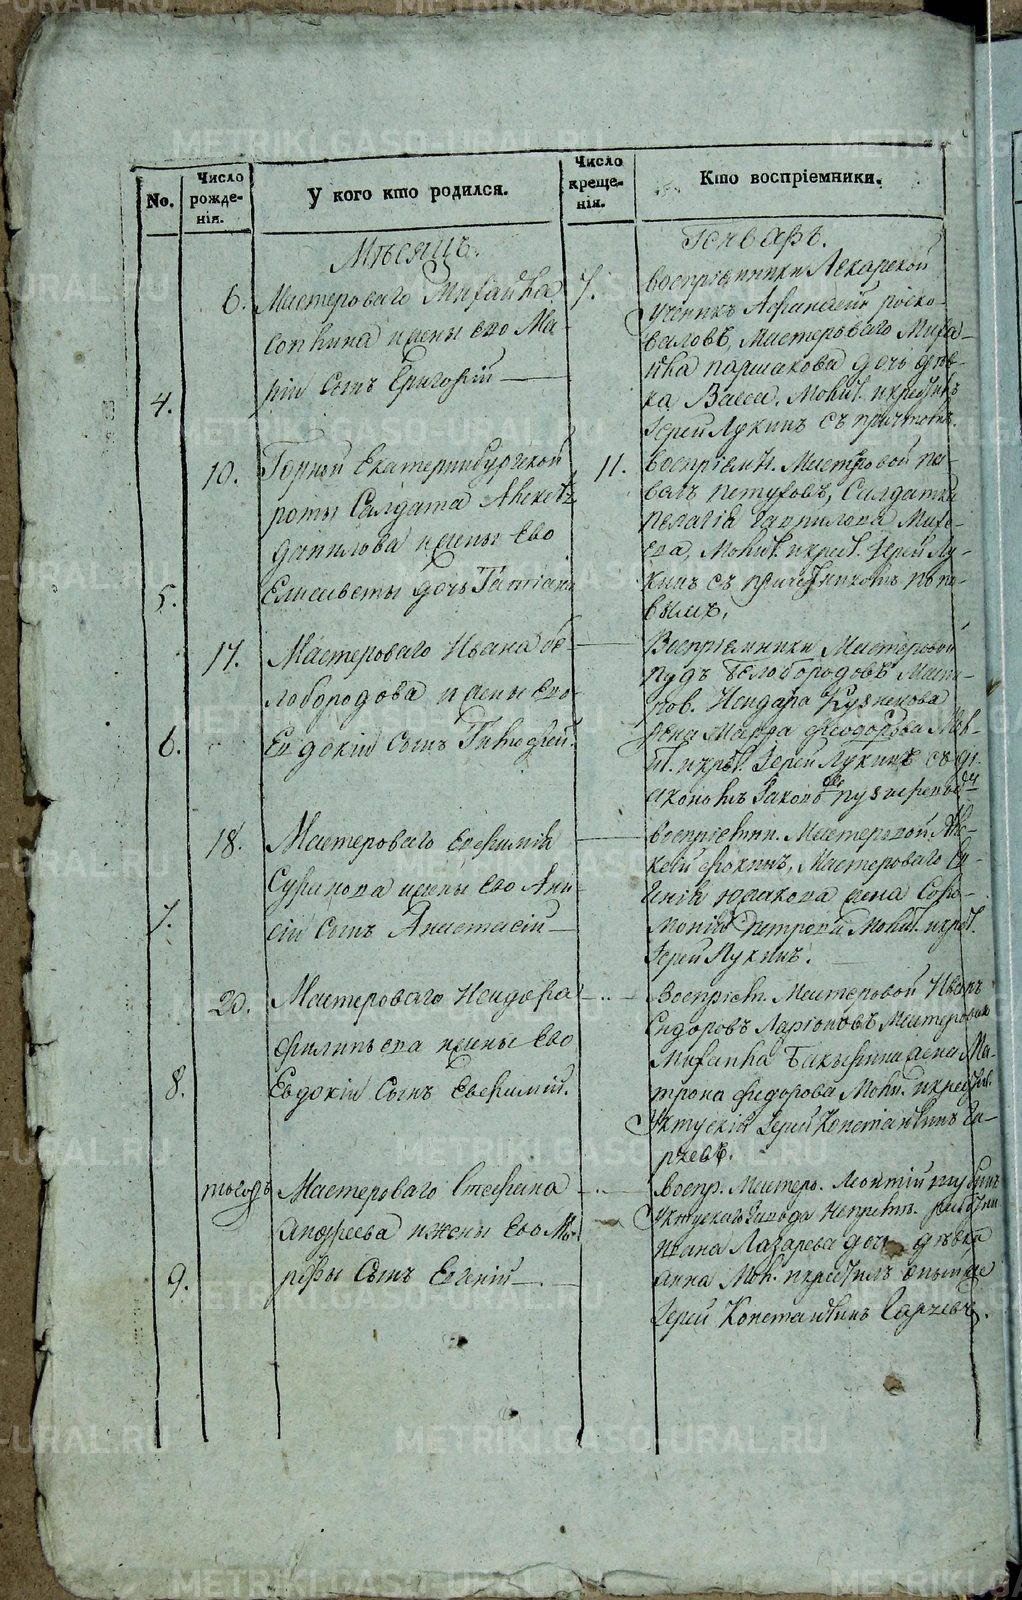 No.
Число рожде-нія.
У кого кто родился.
Число креще-нія.
Кто воспріемники.
Мѣсяцъ
Генварь.
4.
6.
Мастероваго Михаила
Сопкина и жены его Ма-
ріи Сынъ Григорій
7.
Воспріемники Лекарской
Ученикъ Афанасей
валовъ, Мастероваго Миха-
ила паршакова дочь дѣв-
ка Васса. Молит. и крестилъ
Іерей Лукинъ съ причтомъ.
5.
10.
Горной Екатеринбургской
роты Салдата Алексѣя
данилова и жены Его
Елисаветы дочь Татіана
11.
Воспріемн. Мастеровой па-
велъ петуховъ, Салдатка
пелагія гаврилова Михе-
ева, Молит. и крест. Іерей Лу-
кинъ съ причетникомъ попо-
вымъ.
6.
17.
Мастероваго Ивана бе-
лобородова и жены его
Евдокіи Сынъ Тимофей.
Воспріемники Мастеровой
Белобородовъ Масте-
ров. Исидора Кузнецова
жена Марфа феодорова Мол-
ит. и крест. Іерей Лукинъ съ ді-
акономъ Іаковомъ
7.
18.
Мастероваго Евфимія
Сурикова и жены Его Ани-
сіи Сынъ Анастасій
Воспріемни. Мастеровой Але-
ксей фокинъ, Мастероваго Ев-
генія юшкова жена Соло-
монія Петрова Молит. и крест.
Іерей Лукинъ.
8.
20.
Мастероваго Исидора
Филипьева и жены Его
Евдокіи Сынъ Евфимій.
Воспріем. Мастеровой Иванъ
Сидоровъ Ларіоновъ Мастероваго
Михаила Бакыкина жена Ма-
трона федорова Моли. и крестил.
Уктускій Іерей Константинъ Га-
ряевъ.
9.
тогожъ
Мастероваго Стефана
Андреева и жены Его Ма-
рфы Сынъ Евгеній
Воспр. Мастеро. Леонтій
Уктускаго завода
Ивана Лазарева дочь дѣвка
Анна Мол. и крестилъ
Іерей Константинъ Гаряевъ.
METRIKI.GASO-URAL.RU